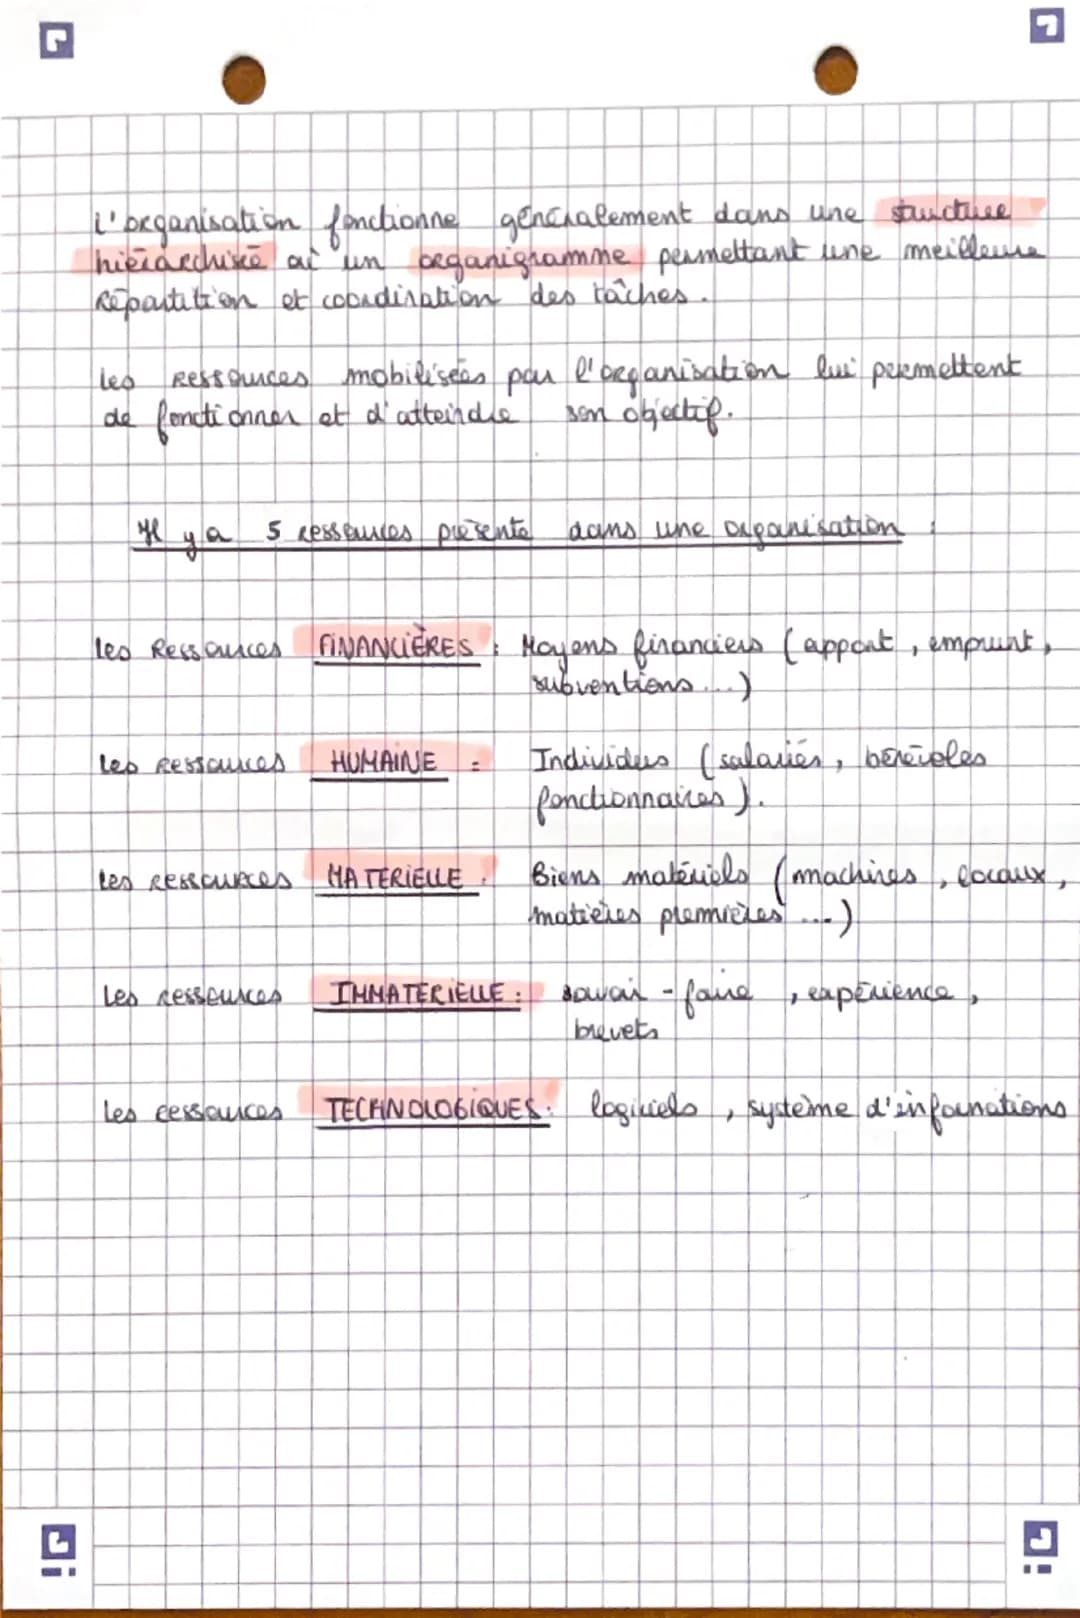 L'organisation fonctionne généralement dans une structure
hiérarchisé où un organigramme permettant une meilleure
répartition et coordination des tâches.
Les ressources mobilisées par l'organisation lui permettent
de fonctionner et d'atteindre son objectif.
Il y a 5 ressources présente dans une organisation :
Les Ressources FINANCIÈRES : Moyens financiers (apport, emprunt,
subventions...)
Les ressources HUMAINE : Individus (salariés, bénévoles
fonctionnaires).
Les ressources MATERIELLE : Biens matériels (machines, locaux,
matières premières ...)
Les ressources IMMATERIELLE : savoir-faire, expérience,
brevets
Les ressources TECHNOLOGIQUES : logiciels, système d'informations